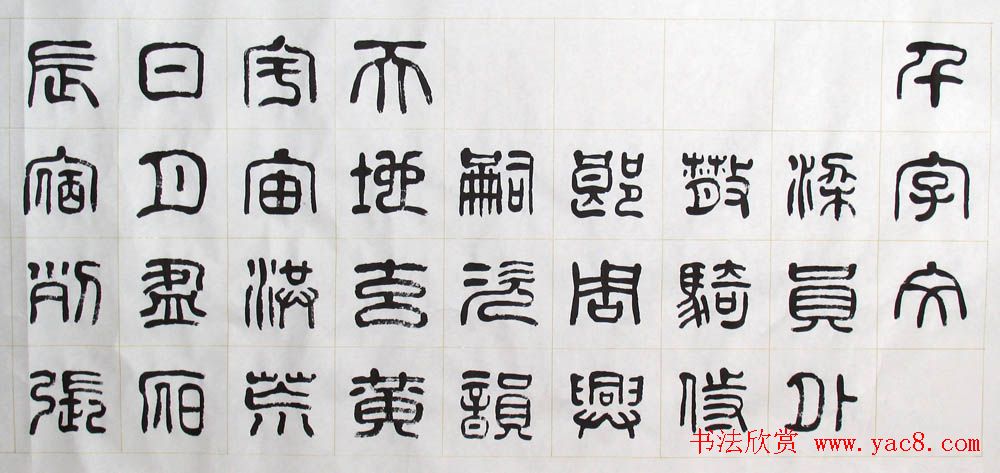 千字文
梁員外
散騎侍
郎周興
嗣次韻
天地玄黃
宇宙洪荒
日月盈昃
辰宿列張
书法欣赏 www.yac8.com